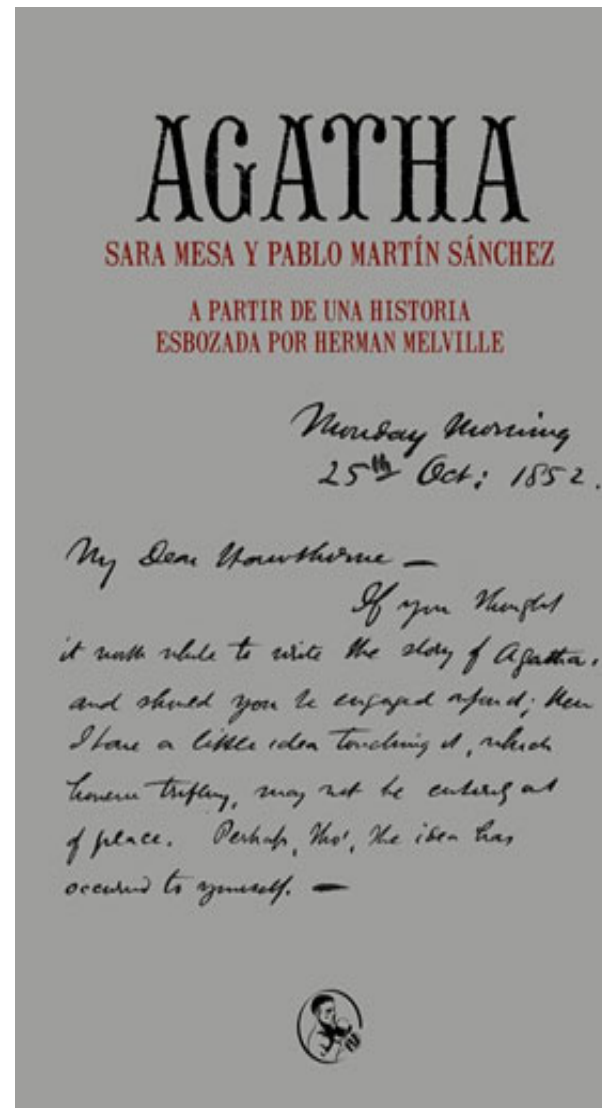 AGATHA
SARA MESA Y PABLO MARTÍN SÁNCHEZ
A PARTIR DE UNA HISTORIA
ESBOZADA POR HERMAN MELVILLE
Monday Morning
25th Oct: 1852.
My Dear Hawthorne —
If you thought
it worth while to write the story of Agatha,
and should you be engaged upon it; then
I have a little idea touching it, which
however trifling, may not be entirely out
of place. Perhaps, tho', the idea has
occured to yourself. —